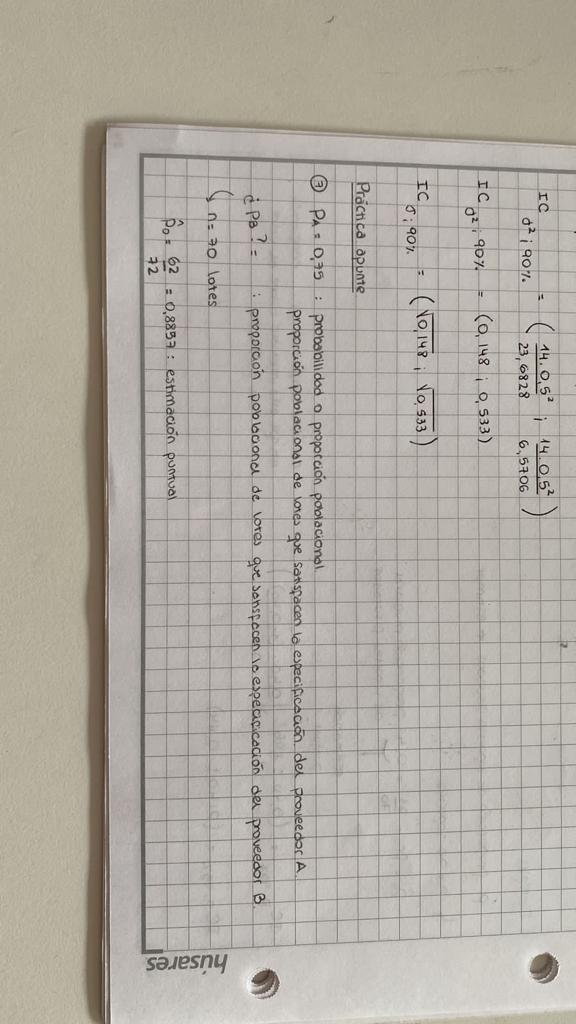 IC σ²;90% = ( 14.0,5² / 23,6828 ; 14.0,5² / 6,5706 )
IC σ²;90% = (0,148 ; 0,533)
IC σ;90% = (√0,148 ; √0,533)
Práctica apunte
③ PA = 0,75 : probabilidad o proporción poblacional.
proporción poblacional de lotes que satisfacen la especificación del proveedor A.
¿ PB ? = : proporción poblacional de lotes que satisfacen la especificación del proveedor B.
n = 70 lotes
p̂o = 62 / 72 = 0,8857 : estimación puntual
húsares